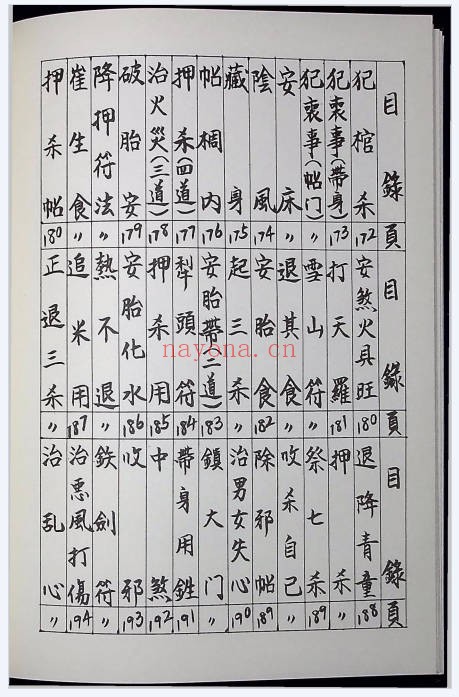 目錄 頁
犯棺杀 172
犯喪事(帶身) 173
犯喪事(帖门) 〃
安床 〃
陰風 174
藏身 175
帖棡内 176
押杀(四道) 177
治火災(三道) 178
破胎安 179
降押符法 〃
崔生食 〃
押杀帖 180
目錄 頁
安煞火具旺 180
打天羅 181
雪山符 〃
退其食 〃
安胎食 182
起三杀 〃
安胎帶(二道) 183
犁頭符 184
押杀用 185
安胎化水 186
熱不退 〃
追米用 187
正退三杀 〃
目錄 頁
退降青童 188
押杀 〃
祭七杀 189
收杀自己 〃
除邪帖 189
治男女失心 190
鎖大门 〃
帶身用鉎 191
中煞 192
收邪 193
鉄劍符 〃
治悪風打傷 194
治乱心 〃
nayona.cn